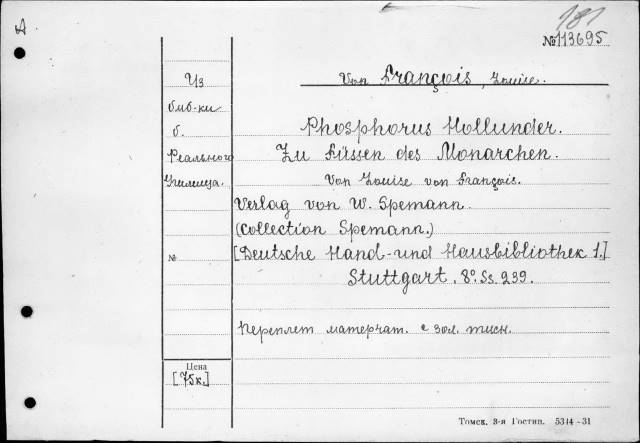 А
181
№113695
Von François, Louise.
Из
биб-ки
б.
Реального
Училища.
Phosphorus Hollunder.
Zu Füssen des Monarchen.
Von Louise von François.
Verlag von W. Spemann.
(Collection Spemann.)
[Deutsche Hand- und Hausbibliothek 1.]
№
Stuttgart. 8° Ss. 239.
Переплет матерчат. с зол. тисн.
Цена
[75к.]
Томск. 3-я Гостип. 5344-31